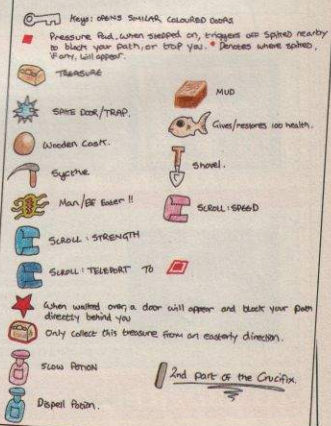 Keys: OPENS SIMILAR COLOURED DOORS
Pressure Pad, when stepped on, triggers off spikes nearby
to block your path, or trap you. * Denotes where spikes,
if any, will appear.
TREASURE
MUD
SPIKE DOOR/TRAP.
Gives/restores 100 health.
Wooden Cask.
Shovel.
Sycthe
Man/EE Eater!!
SCROLL: SPEED
SCROLL: STRENGTH
SCROLL: TELEPORT TO
When walked over, a door will appear and block your path
directly behind you
Only collect this treasure from an easterly direction.
SLOW POTION
2nd part of the Crucifix.
Dispell Potion.